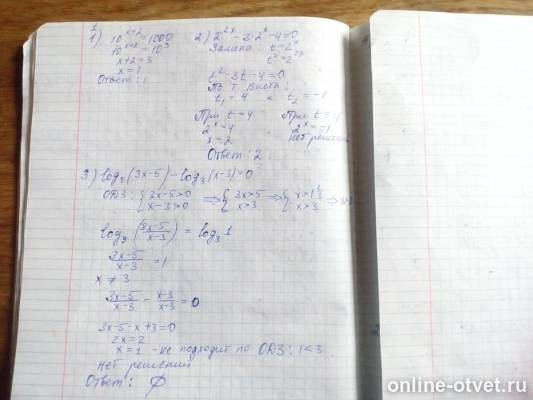 1
1) 10^(x+2) = 1000
10^(x+2) = 10^3
x+2=3
x=1
Ответ: 1
2) 2^(2x) - 3·2^x - 4 = 0
Замена: t=2^x
t^2=2^(2x)
t^2-3t-4=0
По т. Виета:
t1 = 4 и t2 = -1
При t=4
2^x=4
x=2
При t=-1
2^x=-1
нет решений
Ответ: 2
3) log3(3x-5) - log3(x-3)=0
ОДЗ: { 3x-5>0 x-3>0 ⇒ { 3x>5 x>3 ⇒ { x>1 2/3 x>3 ⇒ x>3
log3 ((3x-5)/(x-3)) = log3 1
(3x-5)/(x-3) = 1
x ≠ 3
(3x-5)/(x-3) - (x-3)/(x-3) = 0
3x-5-x+3=0
2x=2
x=1 - не подходит по ОДЗ: 1<3
нет решений
Ответ: ∅
online-otvet.ru